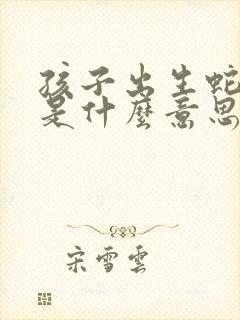 孩子出生蛇
是什麼意思
宋雪雲